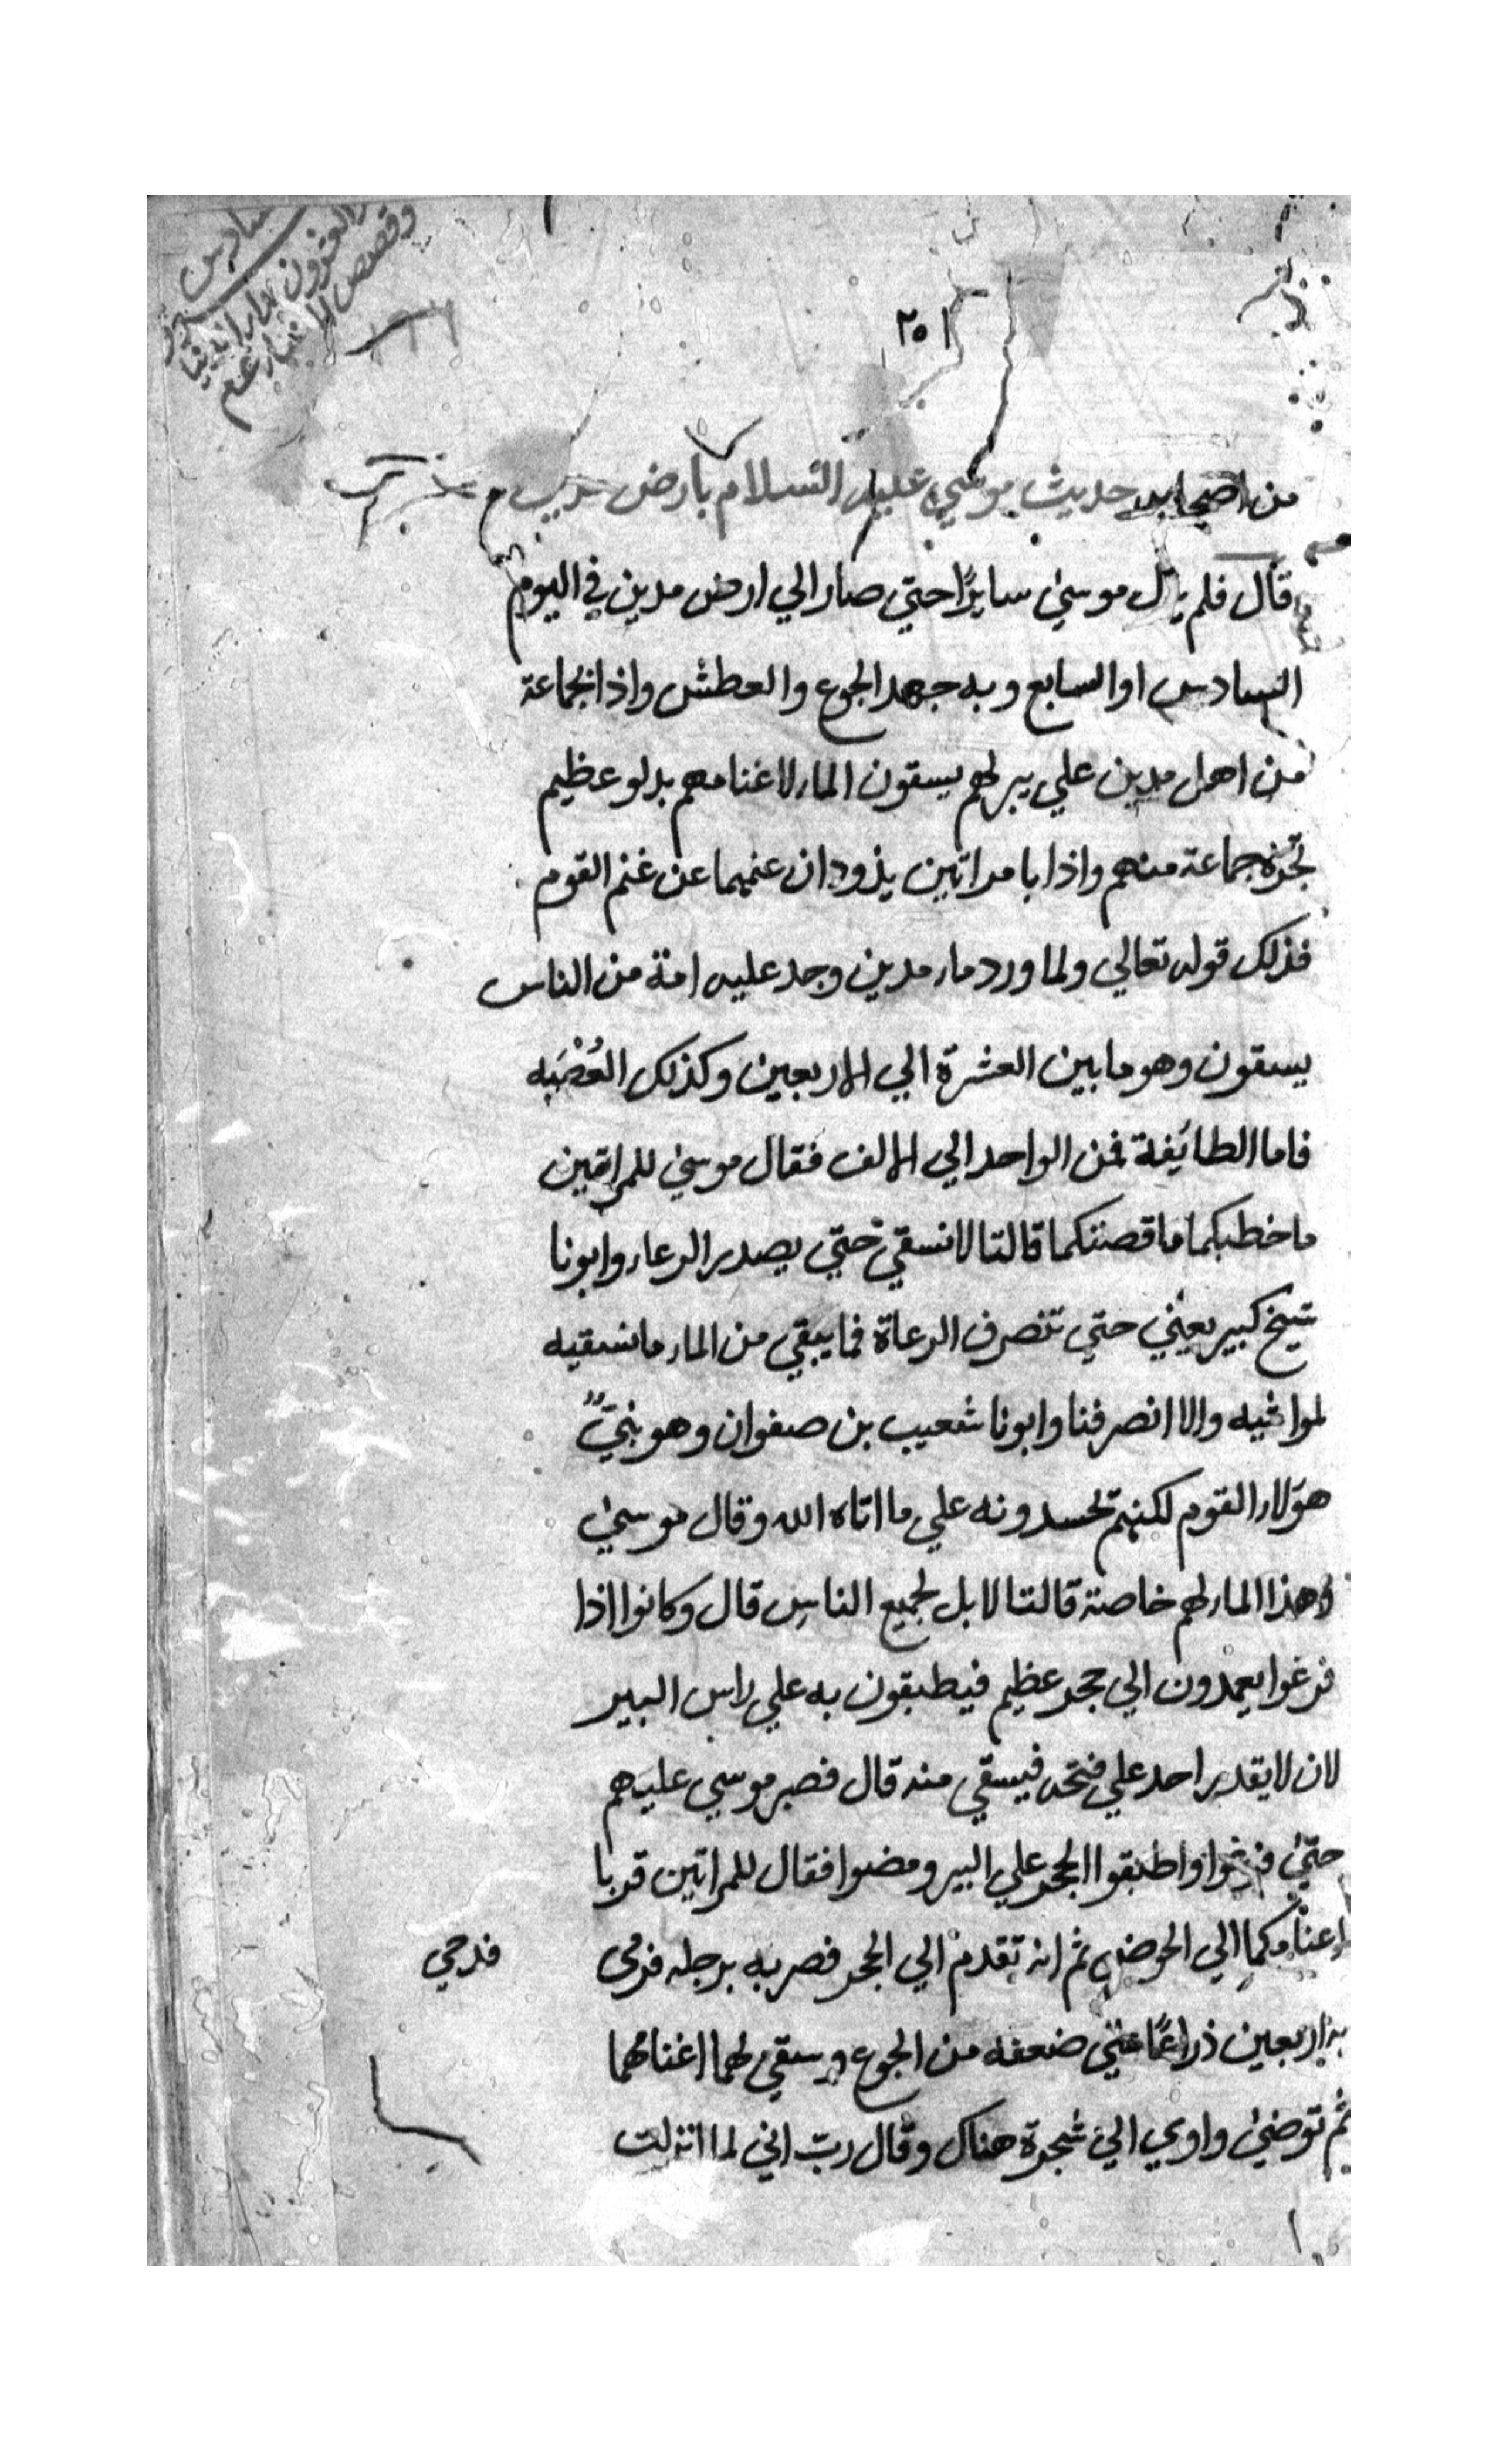 ٢٥١
من اصحابه حديث موسي عليه السلام بارض مدين
قال فلم يزل موسي سايرًا حتي صار الي ارض مدين في اليوم
السادس او السابع وبه جهد الجوع والعطش واذا بجماعة
من اهل مدين علي بير لهم يسقون الماء لاغنامهم بدلو عظيم
تجره جماعة منهم واذا بامراتين يذودان غنمهما عن غنم القوم
فذلك قوله تعالي ولما ورد ماء مدين وجد عليه امة من الناس
يسقون وهو ما بين العشرة الي الاربعين وكذلك العُصْبَه
فاما الطائيفة فمن الواحد الي الالف فقال موسي للمراتين
ما خطبكما ما قصتكما قالتا لا نسقي حتي يصدر الرعاء وابونا
شيخ كبير يعني حتي تنصرف الرعاة فما يبقي من الماء ما نسقيه
لمواشيه والا انصرفنا وابونا شعيب بن صفوان وهو نبيٌّ
هؤلاء القوم لكنهم تحسدونه علي ما اتاه الله وقال موسي
وهذا الماء لهم خاصة قالتا لا بل لجميع الناس قال وكانوا اذا
فرغوا يعمدون الي حجر عظيم فيطبقون به علي راس البير
لان لا يقدر احد علي فتحه فيسقي منه قال فصبر موسي عليهم
حتي فرغوا واطبقوا الحجر علي البير ومضوا فقال للمراتين قربا
اغنامكما الي الحوض ثم انه تقدم الي الحجر فضربه برجله فرمى
فدحي
به اربعين ذراعًا علي ضعفه من الجوع وسقي لهما اغنامهما
ثم توضئ واوي الي شجرة هناك وقال رب اني لما انزلت